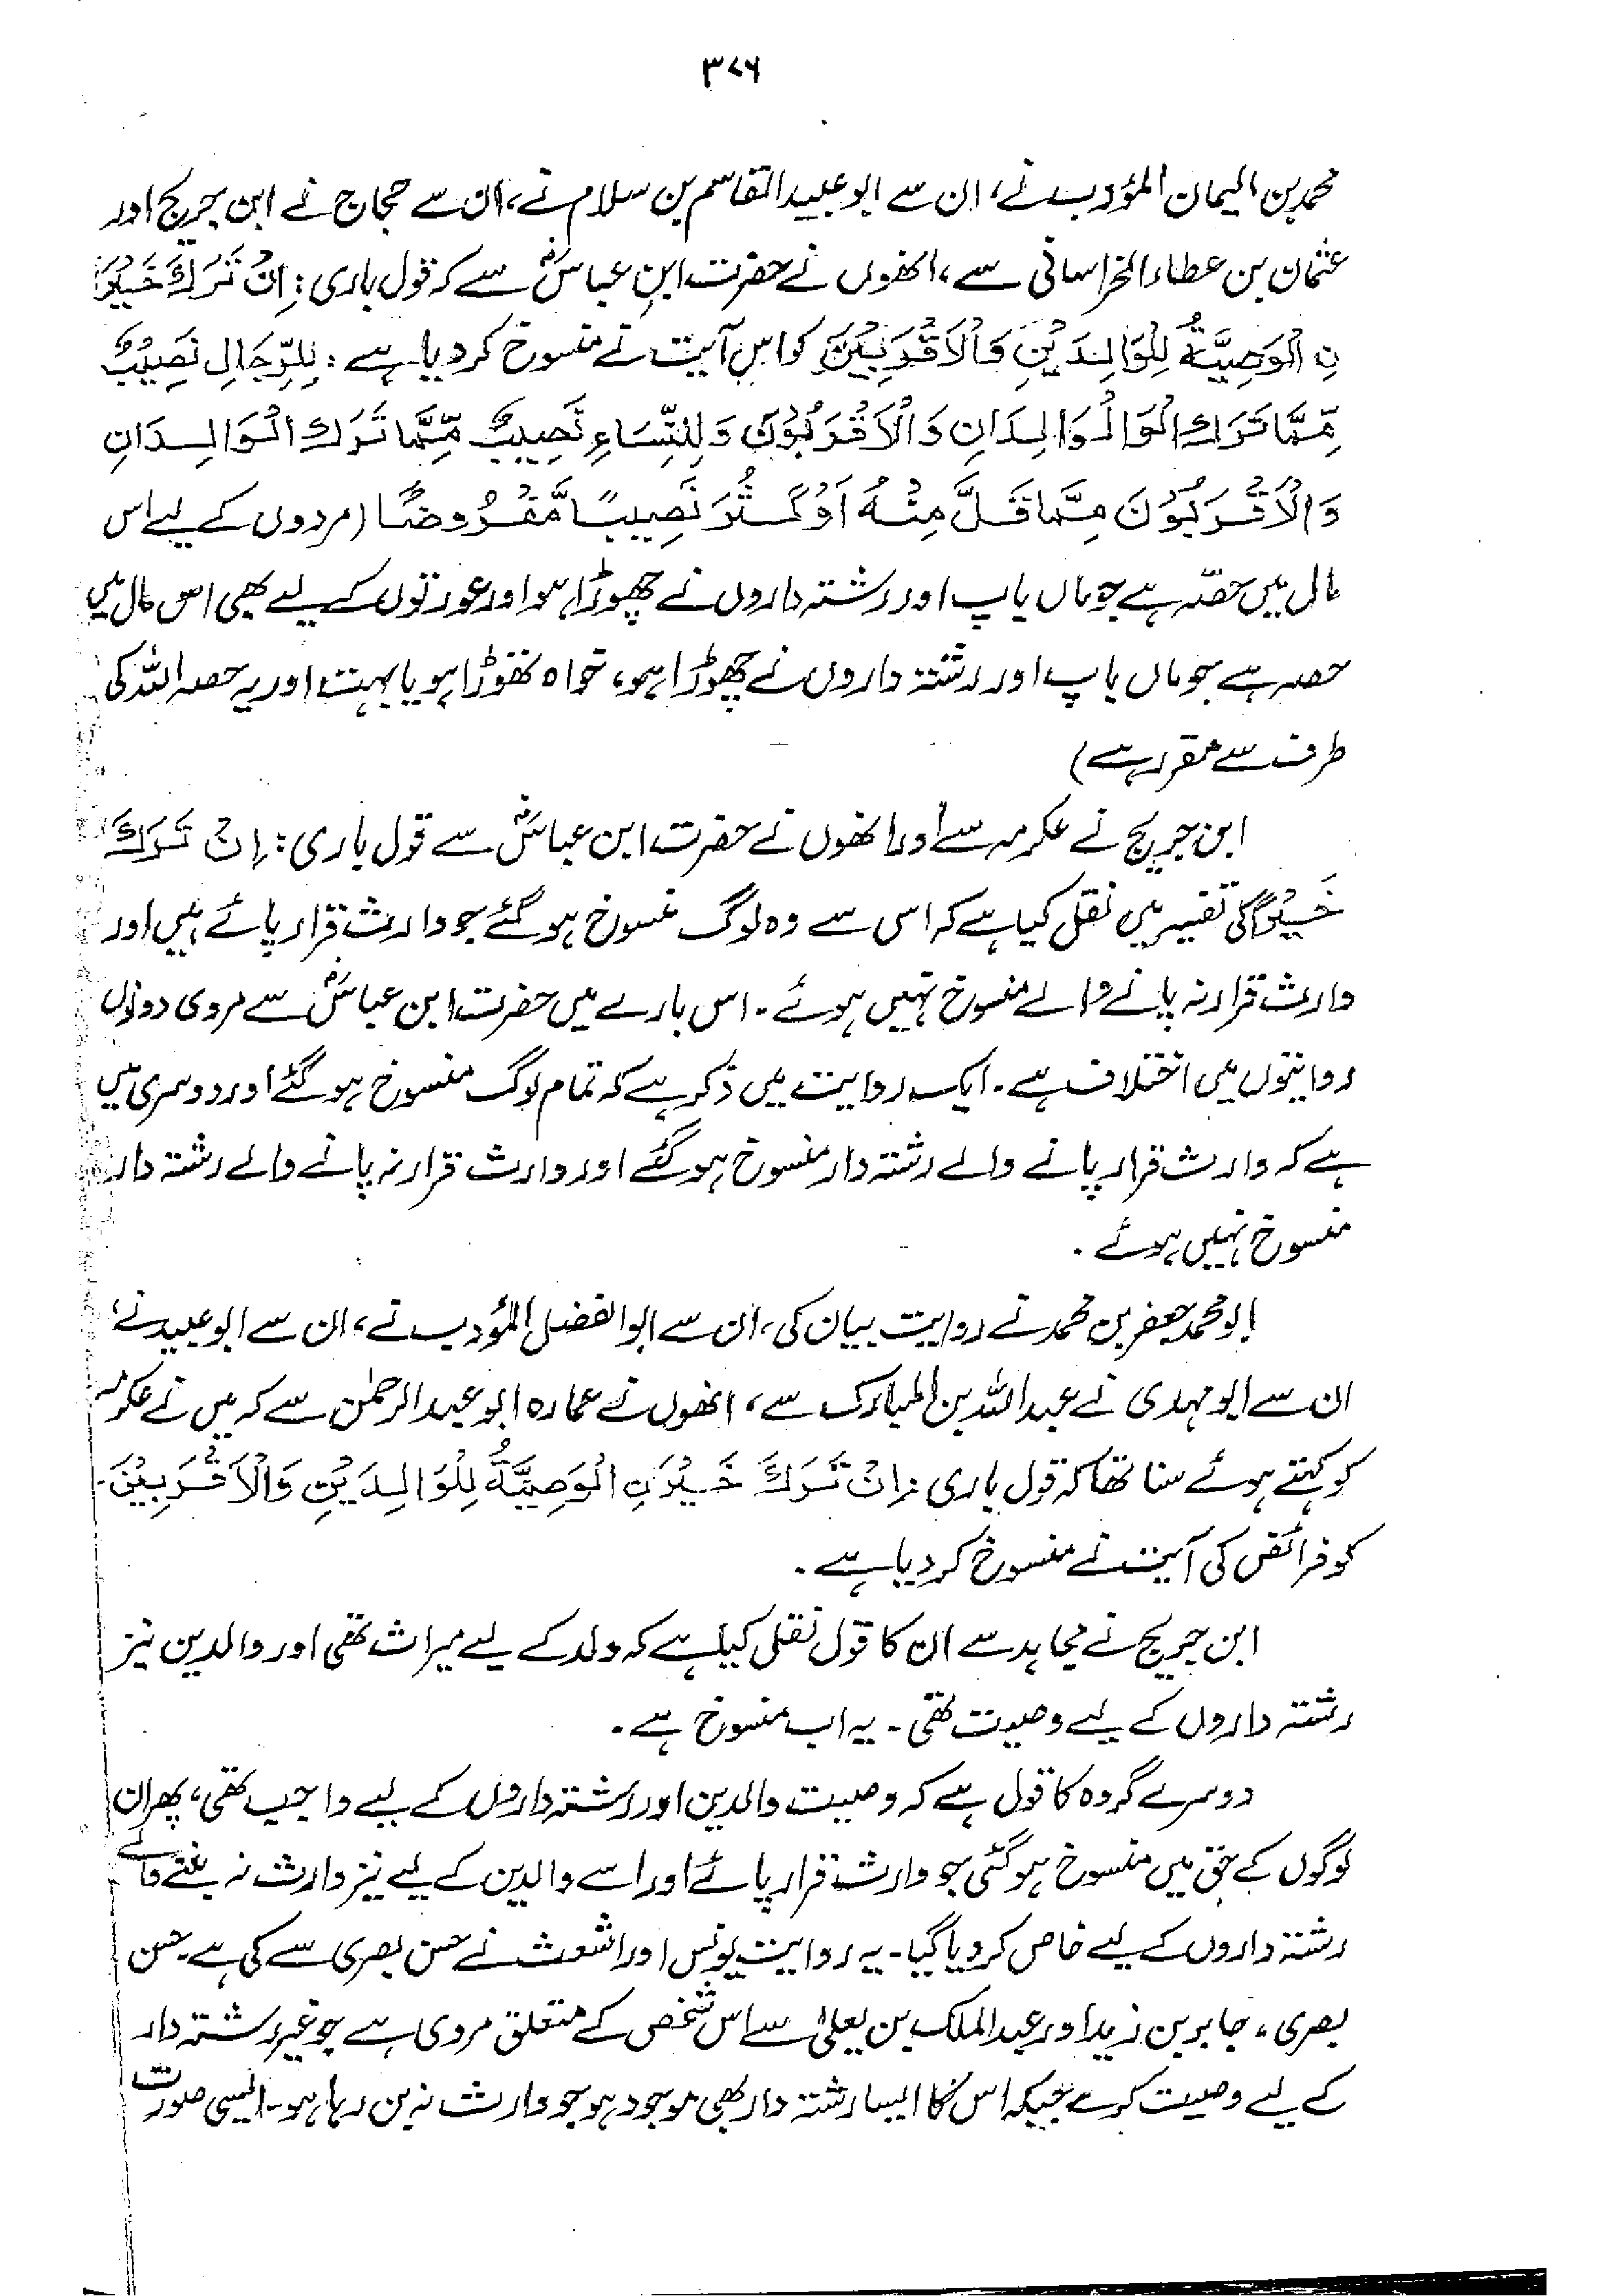 ۳۷۶
محمد بن الیمان المؤدب نے، ان سے ابو عبید القاسم بن سلام نے، ان سے حجاج نے ابن جریج اور
عثمان بن عطاء الخراسانی سے، انھوں نے حضرت ابن عباسؓ سے کہ قول باری: اِنْ تَرَكَ خَيْرَا
نِ الْوَصِيَّةُ لِلْوَالِدَيْنِ وَالْاَقْرَبِيْنَ کو اس آیت نے منسوخ کر دیا ہے: لِلرِّجَالِ نَصِيْبٌ
مِّمَّا تَرَكَ الْوَالِدَانِ وَالْاَقْرَبُوْنَ وَلِلنِّسَاءِ نَصِيبٌ مِّمَّا تَرَكَ الْوَالِدَانِ
وَالْاَقْرَبُوْنَ مِمَّا قَلَّ مِنْهُ اَوْ كَثُرَ نَصِيبًا مَّفْرُوضًا (مردوں کے لیے اس
مال میں حصّہ ہے جو ماں باپ اور رشتہ داروں نے چھوڑا ہو اور عورتوں کے لیے بھی اس مال میں
حصہ ہے جو ماں باپ اور رشتہ داروں نے چھوڑا ہو، خواہ تھوڑا ہو یا بہت اور یہ حصہ اللہ کی
طرف سے مقرر ہے)
ابن جریج نے عکرمہ سے اور انھوں نے حضرت ابن عباسؓ سے قول باری: اِنْ تَرَكَ
خَيْرًا کی تفسیر میں نقل کیا ہے کہ اس سے وہ لوگ منسوخ ہو گئے جو وارث قرار پائے ہیں اور
وارث قرار نہ پانے والے منسوخ نہیں ہوئے۔ اس بارے میں حضرت ابن عباسؓ سے مروی دونوں
روایتوں میں اختلاف ہے۔ ایک روایت میں ذکر ہے کہ تمام لوگ منسوخ ہو گئے اور دوسری میں
ہے کہ وارث قرار پانے والے رشتہ دار منسوخ ہو گئے اور وارث قرار نہ پانے والے رشتہ دار
منسوخ نہیں ہوئے۔
ابو محمد جعفر بن محمد نے روایت بیان کی، ان سے ابوالفضل المؤدب نے، ان سے ابو عبید نے،
ان سے ابو مہدی نے عبد اللہ بن المبارک سے، انھوں نے عمارہ ابو عبد الرحمٰن سے کہ میں نے عکرمہ
کو کہتے ہوئے سنا تھا کہ قول باری: اِنْ تَرَكَ خَيْرَنِ الْوَصِيَّةُ لِلْوَالِدَيْنِ وَالْاَقْرَبِيْنَ۔
کو فرائض کی آیت نے منسوخ کر دیا ہے۔
ابن جریج نے مجاہد سے ان کا قول نقل کیا ہے کہ ولد کے لیے میراث تھی اور والدین نیز
رشتہ داروں کے لیے وصیت تھی۔ یہ اب منسوخ ہے۔
دوسرے گروہ کا قول ہے کہ وصیت والدین اور رشتہ داروں کے لیے واجب تھی، پھر ان
لوگوں کے حق میں منسوخ ہو گئی جو وارث قرار پائے اور اسے والدین کے لیے نیز وارث نہ بننے والے
رشتہ داروں کے لیے خاص کر دیا گیا۔ یہ روایت یونس اور اشعث نے حسن بصری سے کی ہے۔ حسن
بصری، جابر بن زید اور عبد الملک بن یعلیٰ سے اس شخص کے متعلق مروی ہے جو غیر رشتہ دار
کے لیے وصیت کرے جبکہ اس کا ایسا رشتہ دار بھی موجود ہو جو وارث نہ بن رہا ہو۔ ایسی صورت